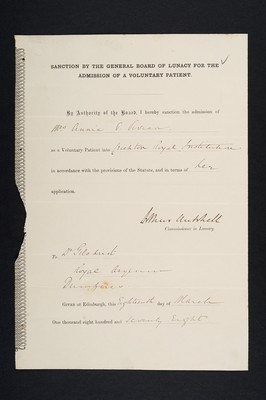 SANCTION BY THE GENERAL BOARD OF LUNACY FOR THE
ADMISSION OF A VOLUNTARY PATIENT.
By Authority of the Board, I hereby sanction the admission of
Mrs Annie
as a Voluntary Patient into Crichton Royal Institution
in accordance with the provisions of the Statute, and in terms of her
application.
Arthur Mitchell
Commissioner in Lunacy.
To Dr Gilchrist
Royal Asylum
Dumfries
GIVEN at Edinburgh, this Eighteenth day of March
One thousand eight hundred and seventy Eight